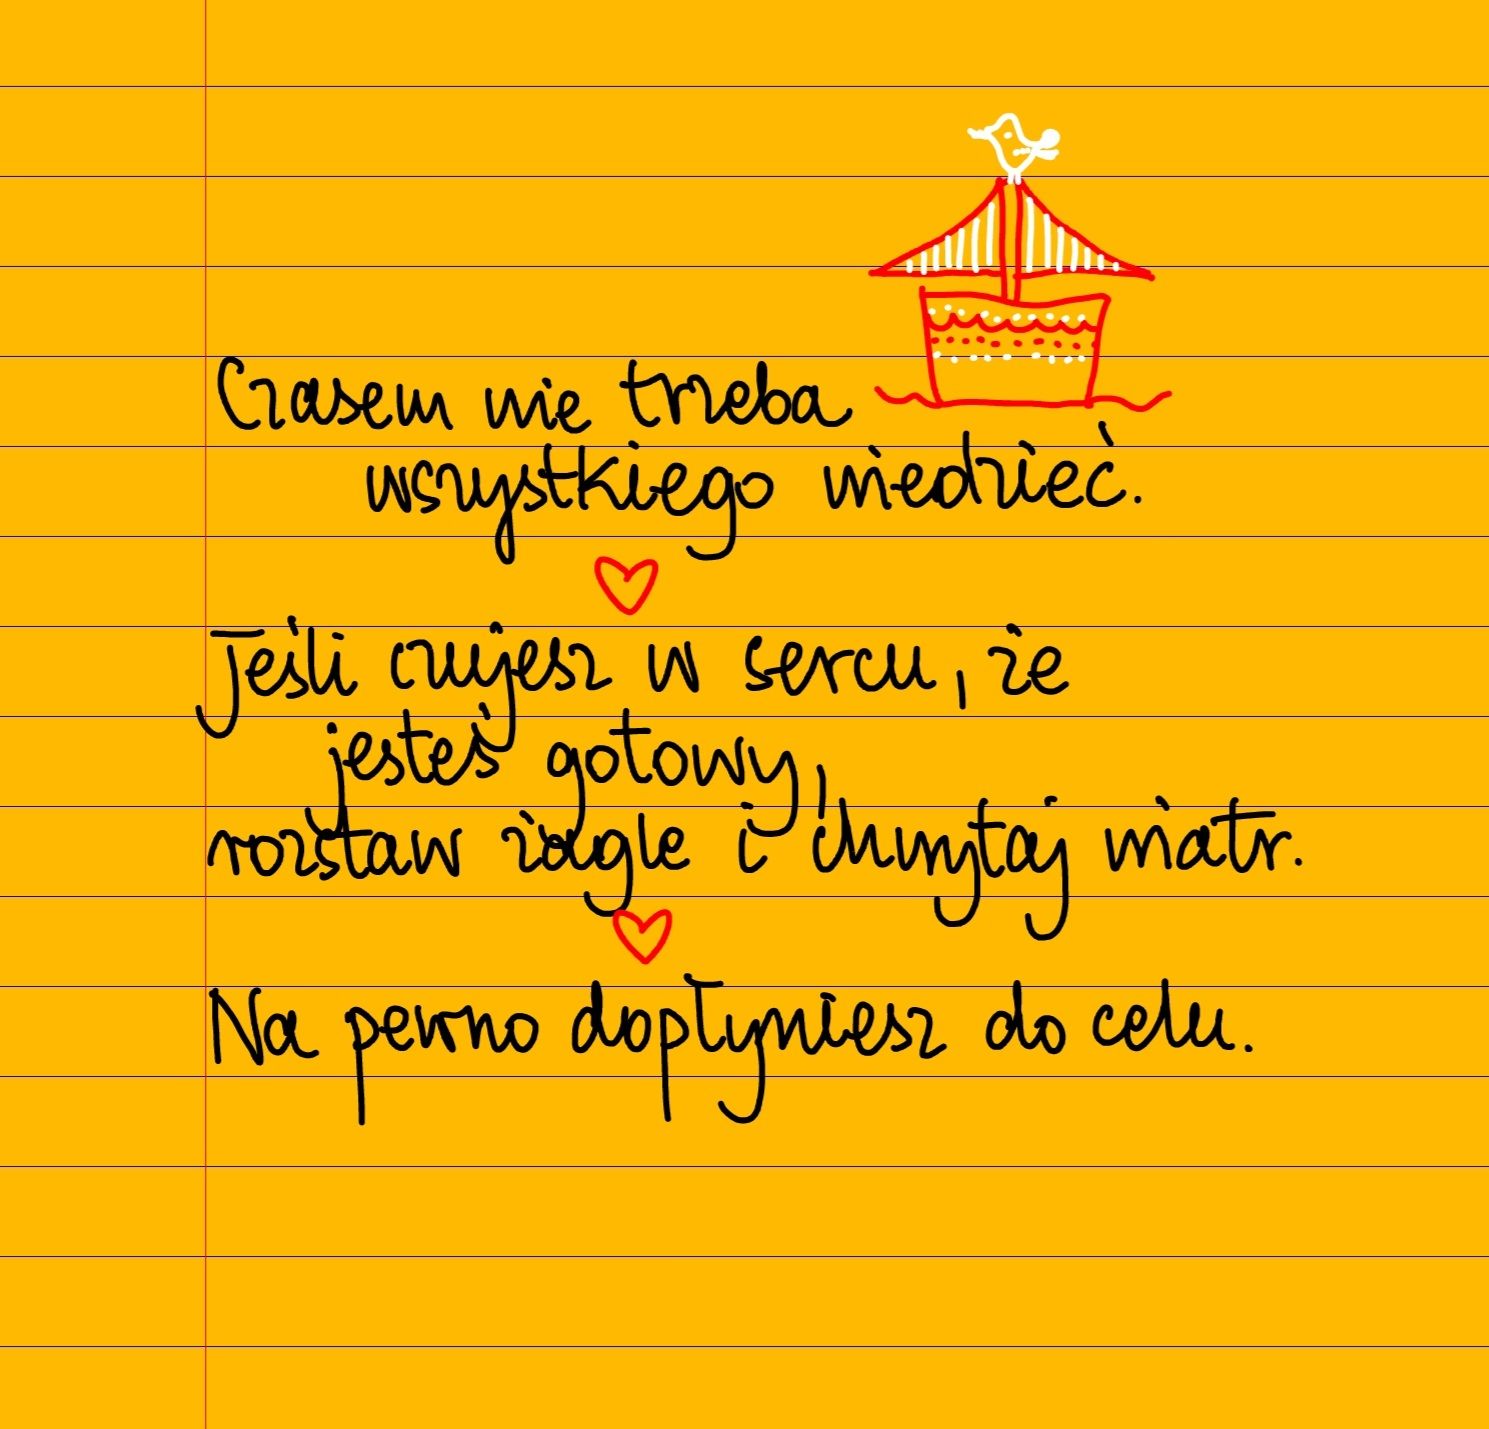 Czasem nie trzeba
wszystkiego wiedzieć.
Jeśli czujesz w sercu, że
jesteś gotowy,
rozstaw żagle i chwytaj wiatr.
Na pewno dopłyniesz do celu.